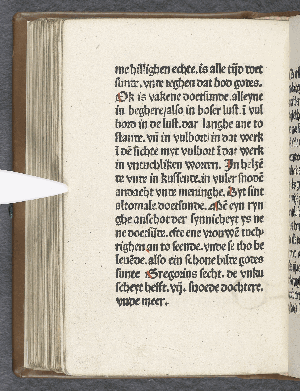 me hillighen echte. is alle tijd doet
sunte. vnte teghen dat bod godes.
Ok is vakene doetsunde. alleyne
in beghere/ also in boser lust. ī vul
bord in de lust. dar langhe ane to
stande. vñ in vulbord in dat werk
ī dē sichte myt vulbort ī dat werk
in vntuchliken worten. In
te vnde in kussende. in vuler snodē
andacht vnde meninghe. Dyt sint
altomale doetsunde. eyn ryn
ghe anschot der synnicheyt ys ne
ne doetsute. efte ene vrouwē tuch
tighen an to seende. vnde se tho be
leuēde. also ein schone bilte godes
sunte Gregorius secht. de vnku
scheyt hefft. vij. snoede dochtere.
vnde meer.